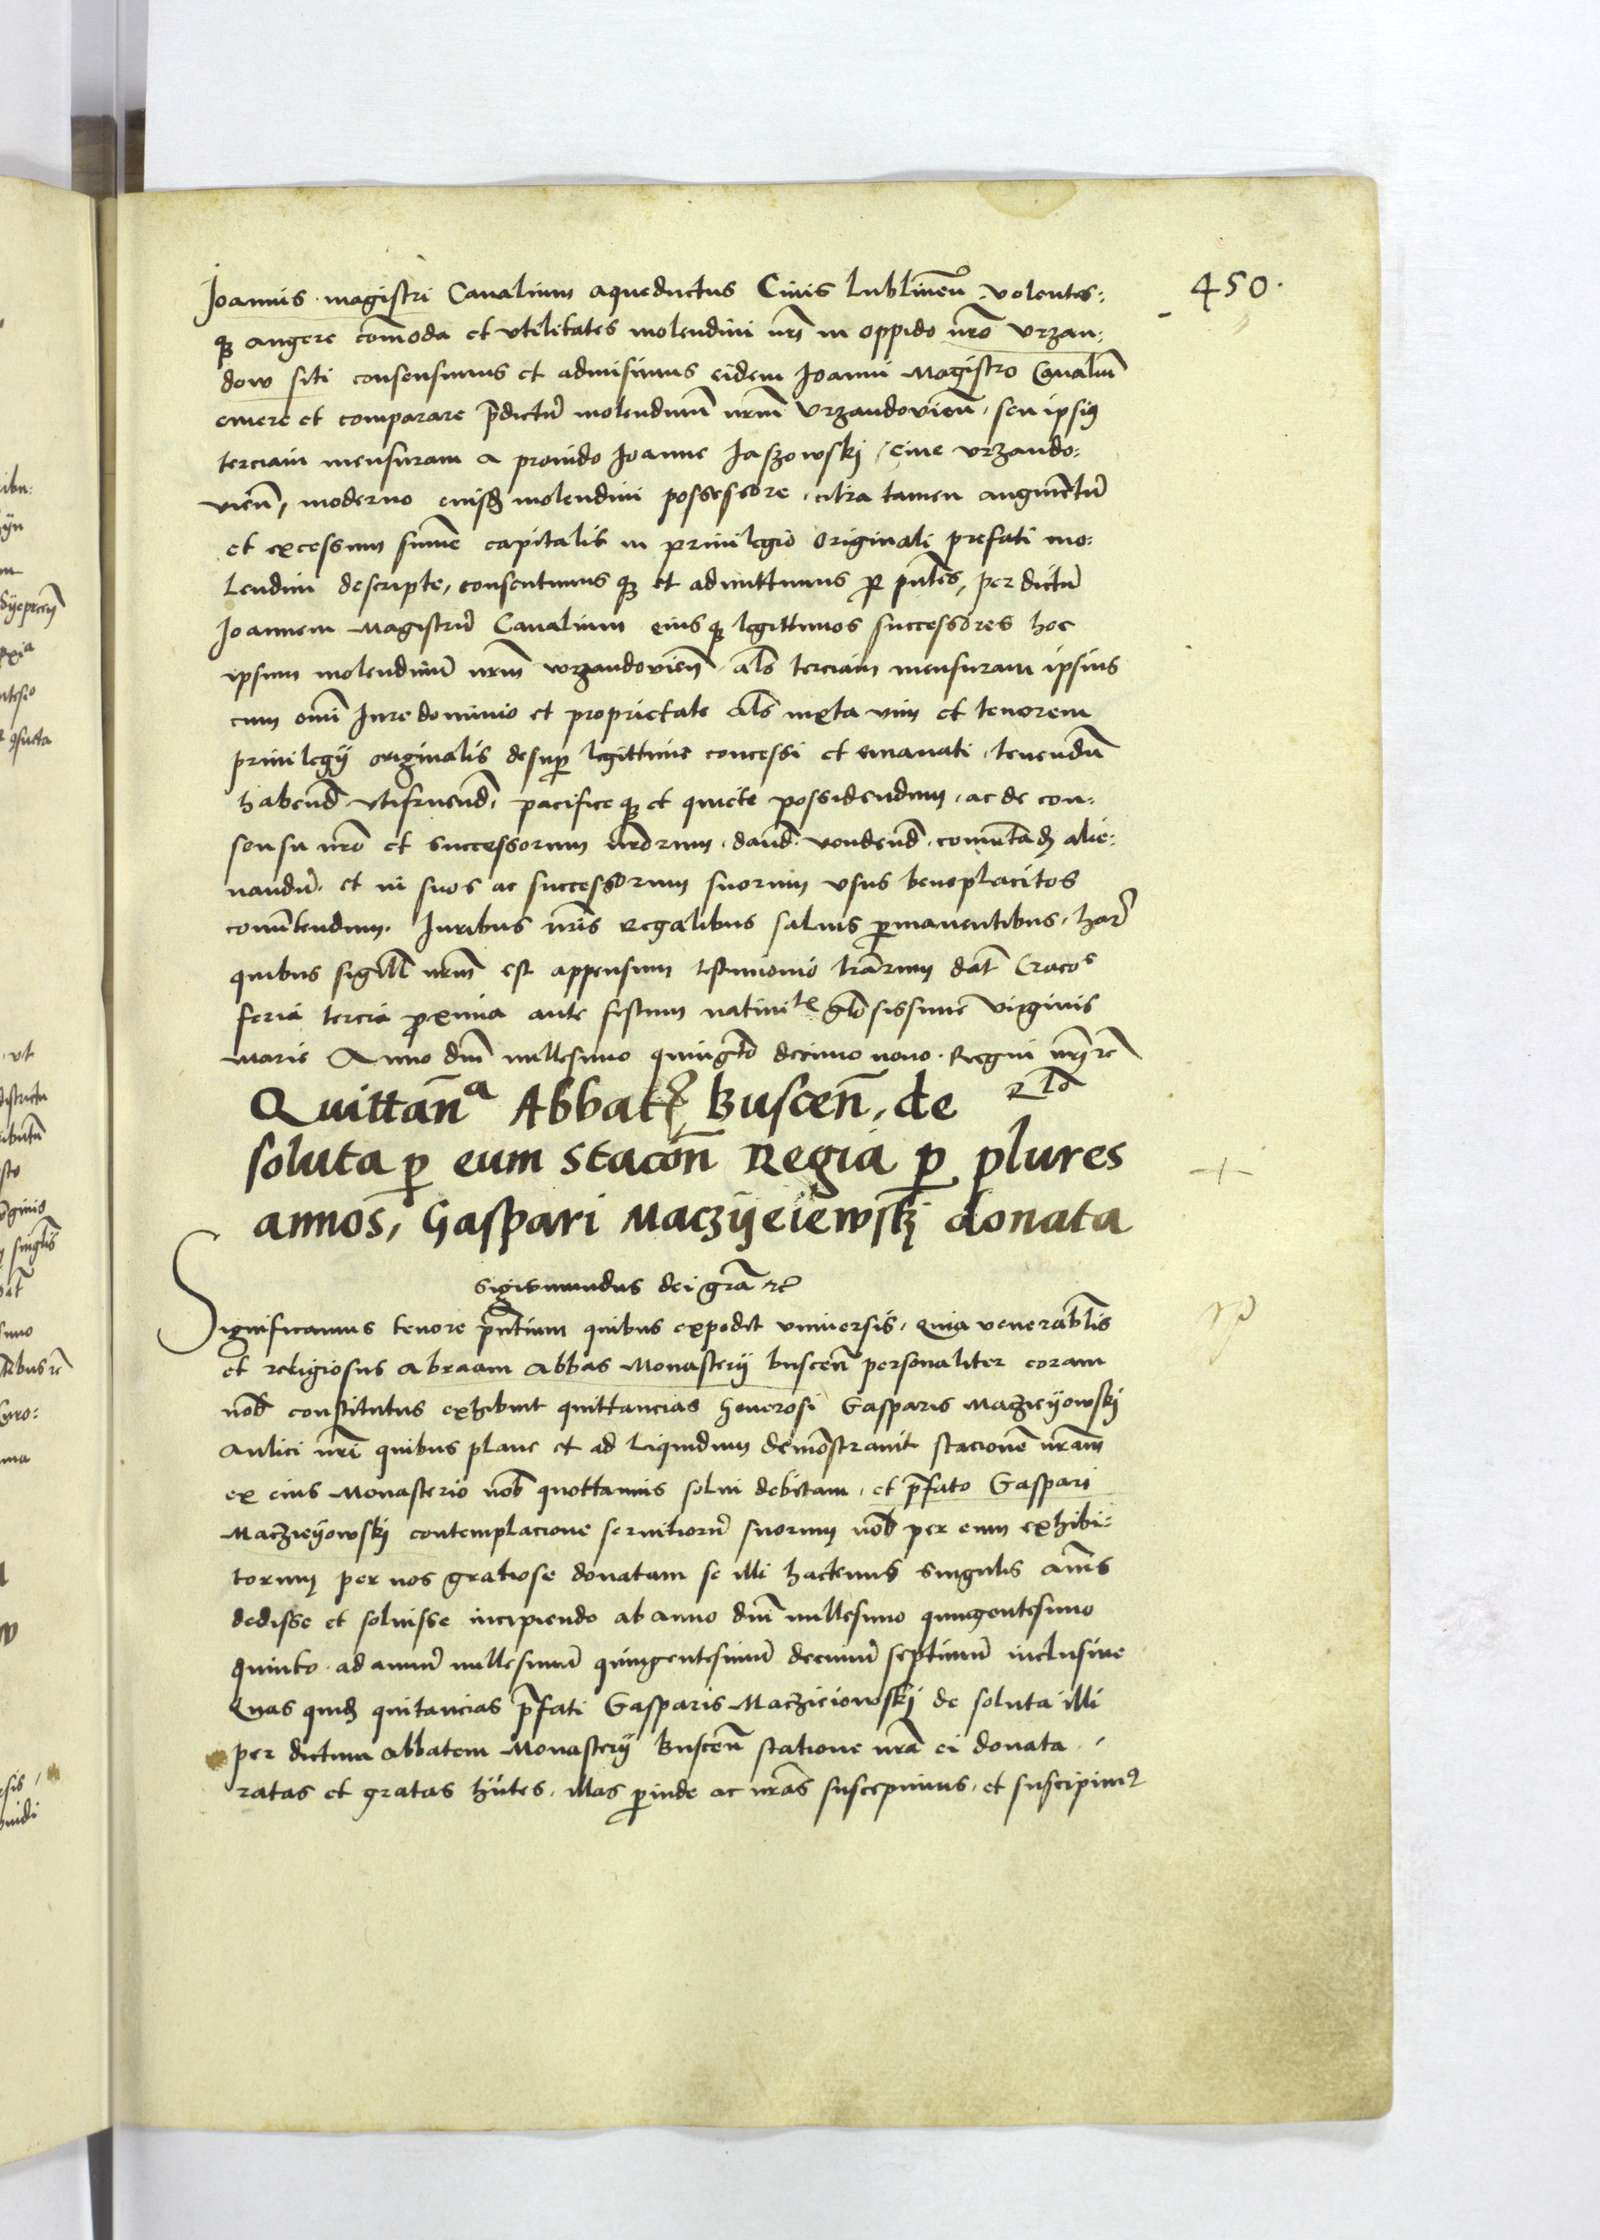 450.
Joannis magistri Canalium aqueductus Civis Lublinen̄ volentes:
q̄ȝ augere com̄oda et vtilitates molendini nr̄i in oppido nr̄o Vrzan:
dow siti consensimus et admisimus eidem Joanni Magistro Canaliū
emere et comparare p̄dictū molendinū nr̄m Vrzandovien̄ seu ipsiꝰ
terciam mensuram a provido Joanne Jaszowskj Cive vrzando:
vien̄, moderno eiusdȝ molendini possessore, citra tamen augmētū
et excessum sum̄e capitalis in privilegio originali prefati mo:
lendini descripte, consentimus qȝ et admittimus ꝑ pn̄tes, per dictū
Joannem Magistrū Canalium eius qȝ legittimos successores hoc
ipsum molendinū nr̄m wrzandovien̄ al̄s terciam mensuram ipsius
cum om̄i Jure dominio et proprietate al̄s iuxta vim et tenorem
privilegij originalis desuꝑ legittime concessi et emanati tenendū
habend̄ vtifruend̄, pacifice qȝ et quiete possidendum, ac de con:
sensu nr̄o et successorum nr̄orum, dand̄ vendend̄ comutadȝ alie:
nandū, et in suos ac successorum suorum vsus beneplacitos
conv̄tendum. Juribus nr̄is Regalibus salvis ꝑmanentibus, harū
quibus sigill̄ nr̄m est appensum testimonio lr̄arum dat̄ Cracoꝰ
feria tercia proxima ante festum nativitꝭ glo̅sissime virginis
marie Anno dn̄i millesimo quingeto̅ decimo nono. Regni nr̄i &c̄
Rlo̅
Quittan̄ᵃ Abbatꝭ Buscen̄, de
soluta ꝑ eum stacōn Regia ꝑ plures
annos, Gaspari Maczyeiewskj donata
Sigismundus dei gr̄a &c̄
Significamus tenore pn̄tium quibus expedit vniversis, Quia venerabl̄is
et religiosus Abraam Abbas Monasterij buscen̄ personaliter coram
nob̄ constitutus exhibuit quittancias Generosi Gasparis Maczieyowskj
Aulici nr̄i quibus plane et ad liquidum demōstravit stacionē nr̄am
ex eius Monasterio nob̄ quottannis solvi debitam, et p̄fato Gaspari
Maczieyowskj contemplacione servitiorū suorum nob̄ per eum exhibi:
torum per nos gratiose donatam se illi hactenus singulis an̄is
dedisse et solvisse incipiendo ab anno dn̄i millesimo quingentesimo
quinto ad annū millesimū quingentesimū decimū septimū inclusive
Quas quidȝ quitancias p̄fati Gasparis Maczieiowskj de soluta illi
per dictum Abbatem Monasterij Buscen̄ statione nr̄a ei donata
ratas et gratas hn̄tes, illas ꝑinde ac nr̄as suscepimus, et suscipimꝰ